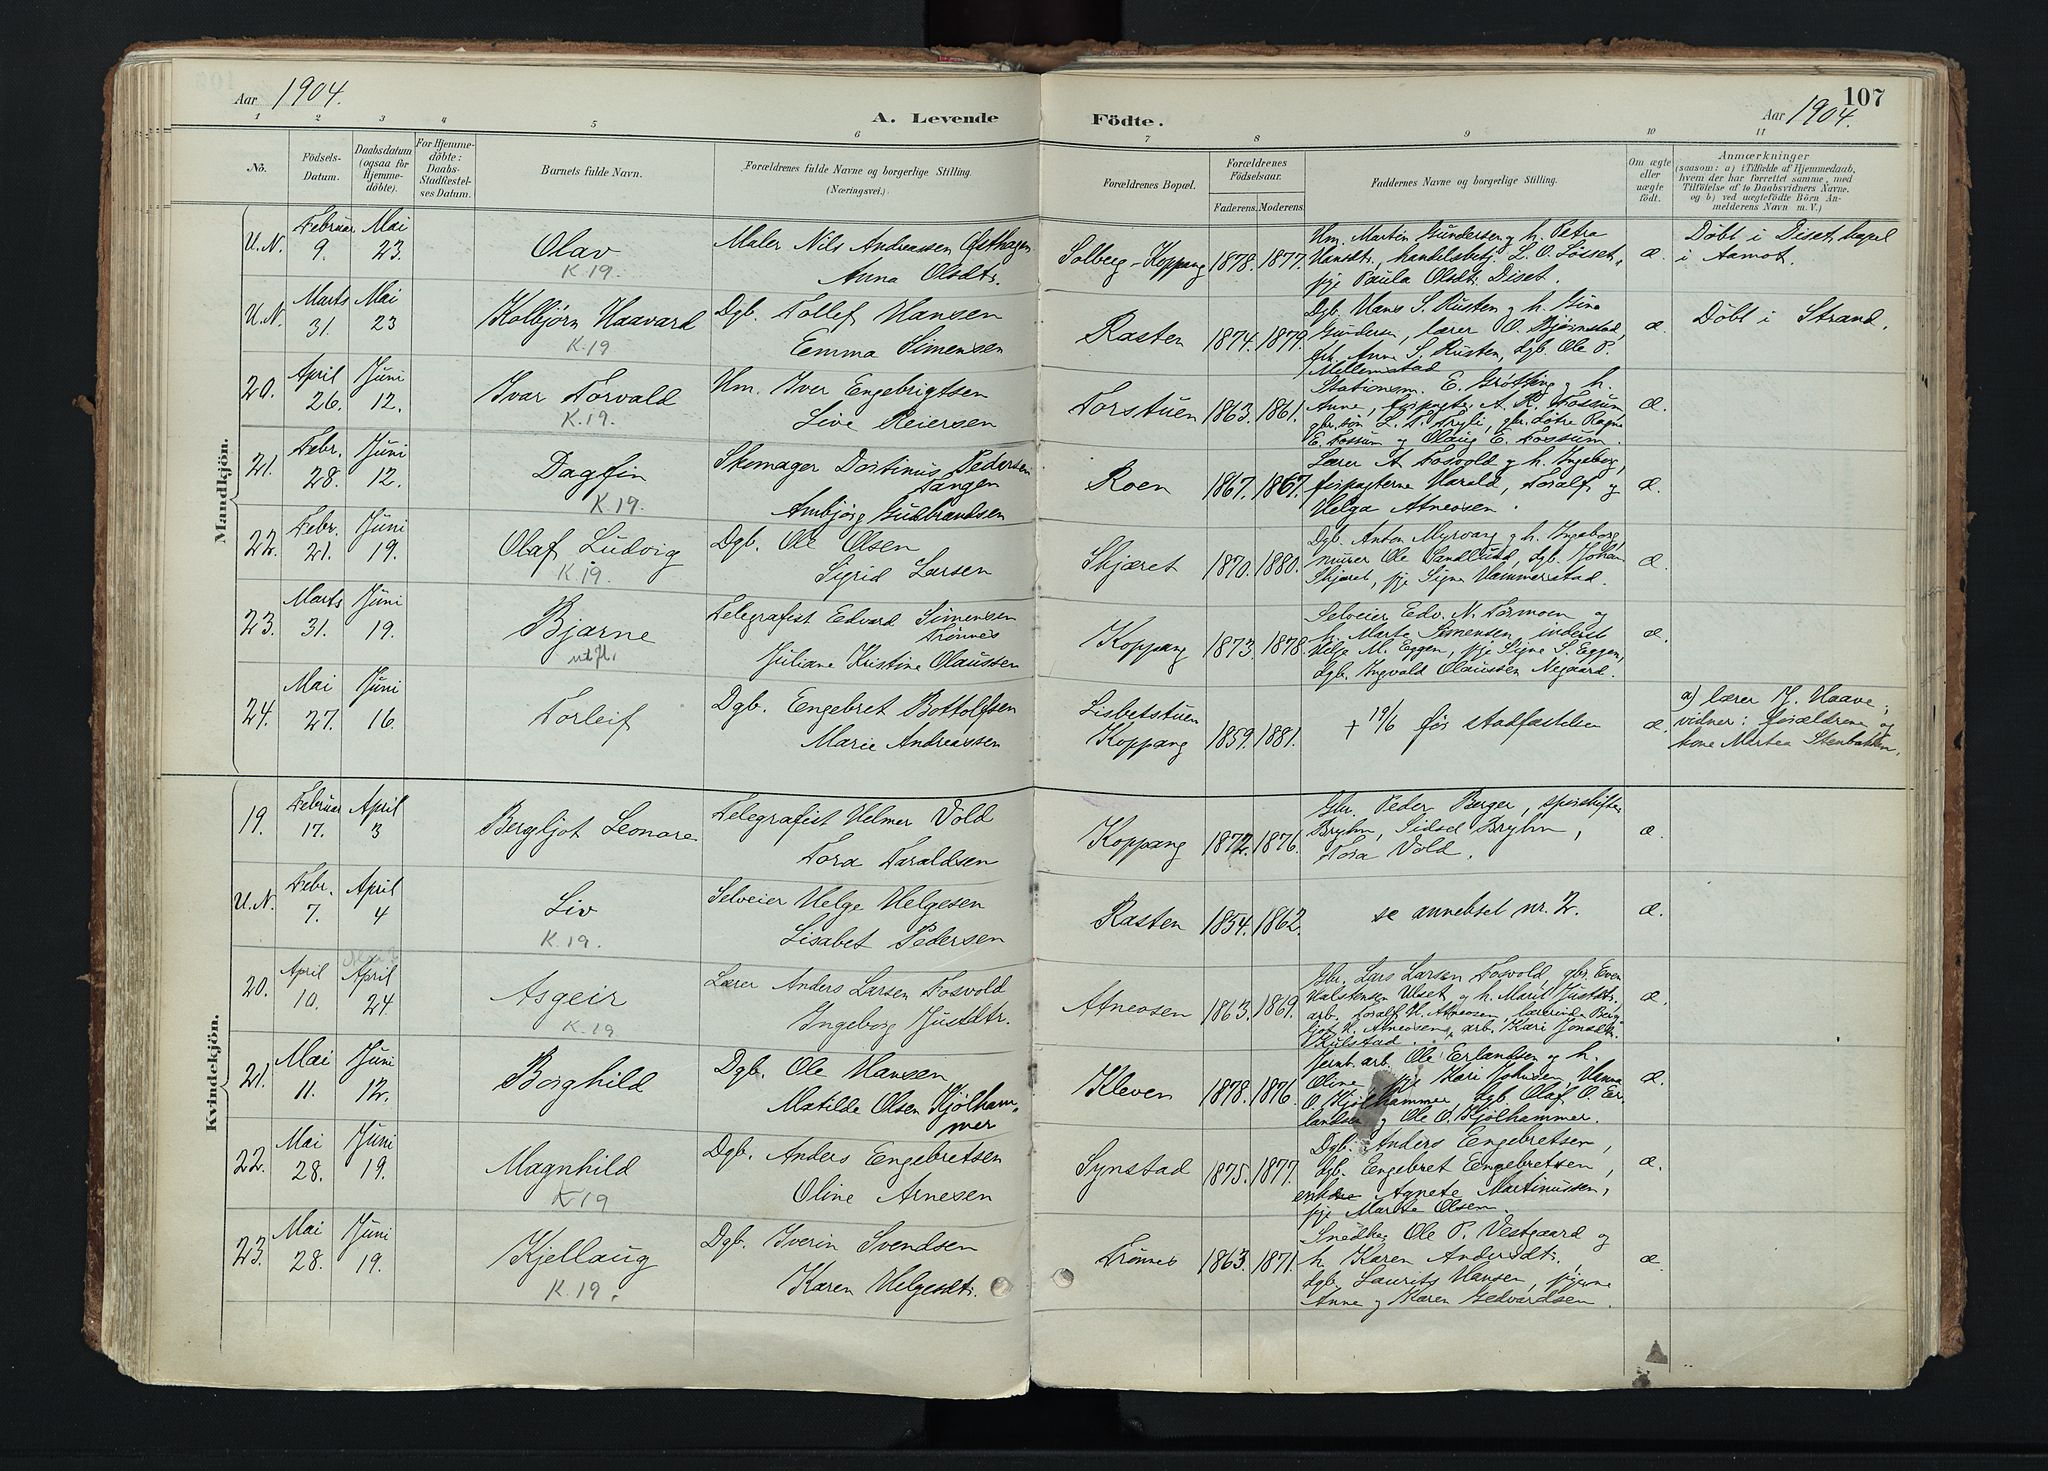 107
Aar 1904.
A. Levende Födte.
Aar 1904.
1 2 3 4 5 6 7 8 9 10 11
No.
Födsels-
Datum.
Daabsdatum
(ogsaa for
Hjemme-
döbte).
For Hjemme-
döbte:
Daabs-
Stadfæstel-
ses Datum.
Barnets fulde Navn.
Forældrenes fulde Navne og borgerlige Stilling.
(Næringsvei.)
Forældrenes Bopæl.
Forældrenes
Födselsaar.
Faderens. Moderens.
Faddernes Navne og borgerlige Stilling.
Om ægte
eller
uægte
født.
Anmærkninger
(saasom: a) i Tilfælde af Hjemmedaab,
hvem der har forrettet samme, med
Tilföielse af to Daabsvidners Navne.
og b) ved uægtefödte Börn An-
melderens Navn m. V.)
Mandkjön.
U.N. Februar 9. Mai 23. Olav K.19. Maler Nils Andreassen Østhagen
Anna Olsdtr.
Solberg-Koppang 1878. 1877. Um. Martin Gundersen og h. Petra
handelsbetj. L. O. Løiset,
pje Paula Olsdtr. Diset.
æ. Döbt i Diset kapel
i Aamot.
U.N. Marts 31 Mai 23 Kolbjørn Haavard K.19 Dgb. Tollef Hansen
Emma Simensen
Rasten 1874. 1879. Dgb. Hans S. Rusten og h. Gine
Gundersen, lærer O. Bjørnstad,
Anne S. Rusten, dgb. Ole P.
Mellemstad
æ. Döbt i Strand.
20. April 26. Juni 12. Ivar Torvald K.19. Um. Iver Engebrigtsen
Live Reiersen
Torstuen 1863. 1861. Stationsm. E. Grøtting og h.
Anne, forpagter A. R. Fossum,
gbr.søn L. T. Tryli, gbr.døtre Ragna
E. Fossum og Olaug E. Fossum.
æ.
21. Febr. 28. Juni 12. Dagfin K.19. Skomager Dortinus Pedersen
Tangen
Ambjørg Gudbrandsen
Roen 1867. 1867. Lærer A Fosvold og h. Ingeborg,
forpagterne Harald, Toralf og
Helga Atneosen.
æ.
22. Febr. 21. Juni 19. Olaf Ludvig K.19. Dgb. Ole Olsen
Sigrid Larsen
Skjæret 1870. 1880. Dgb. Anton Myrvang og h. Ingeborg,
murer Ole Sandlund, dgb. Johan
Skjæret, pje Signe Hammerstad.
æ.
23. Marts 31. Juni 19. Bjarne utfl. Telegrafist Edvard Simensen
Trønnes
Juliane Kristine Olaussen
Koppang 1873. 1878. Selveier Edv. N. Tormoen og
h. Marte Simensen, inderst
Helge M. Eggen, pje Signe S. Eggen,
dgb. Ingvald Olaussen Negaard.
æ.
24. Mai 27. Juni 16. Torleif Dgb. Engebret Bottolfsen
Marie Andreassen
Lisbetstuen
Koppang 1859. 1881. + 19/6 før stadfæstelsen æ.
a) lærer J. Haave;
vidner: forældrene og
kone Martea Stenbakken.
Kvindekjön.
19. Februar 17. April 3 Bergljot Leonore Telegrafist Helmer Vold
Tora Taraldsen
Koppang 1872. 1876. Gbr. Peder Berger, sporskifter
Bryhn, Sidsel Bryhn,
Tora Vold.
æ.
U.N. Febr. 7. April 4 Liv K.19. Selveier Helge Helgesen
Lisabet Pedersen
Rasten 1854. 1862. se annetset nr. 2. æ.
20. April 10. April 24. Asgeir K.19 Lærer Anders Larsen Fosvold
Ingeborg Justdtr.
Atneosen 1863. 1869. Gbr. Lars Larsen Fosvold, gbr. Even
Halstensen Ulset og h. Marit Justdtr.
arb. Toralf H. Atneosen, lærerinde Berg-
ljot H. Atneosen, arb. Kari Jonsdtr.
Kulstad.
æ.
21. Mai 11. Juni 12. Borghild Dgb. Ole Hansen
Matilde Olsen Kjølham-
mer
Kleven 1878. 1876. Jernb.arb. Ole Erlandsen og h.
Oline, pje Kari Johnsen, Hanna
O. Kjølhammer, dgb. Olaf O. Er-
landsen og Ole O. Kjølhammer.
æ.
22. Mai 28. Juni 19. Magnhild K 19 Dgb. Anders Engebretsen
Oline Arnesen
Synstad 1875. 1877. Dgb. Anders Engebretsen,
dgb. Engebret Engebretsen,
Agnete Martinussen,
pje Marte Olsen.
æ.
23. Mai 28. Juni 19. Kjellaug K.19. Dgb. Iverin Svendsen
Karen Helgesdtr.
Trønnes 1863. 1871. Snedker Ole P. Vestgaard og
h. Karen Andersdtr.,
dgb. Laurits Hansen, pigerne
Anne og Karen Gedvardsen.
æ.